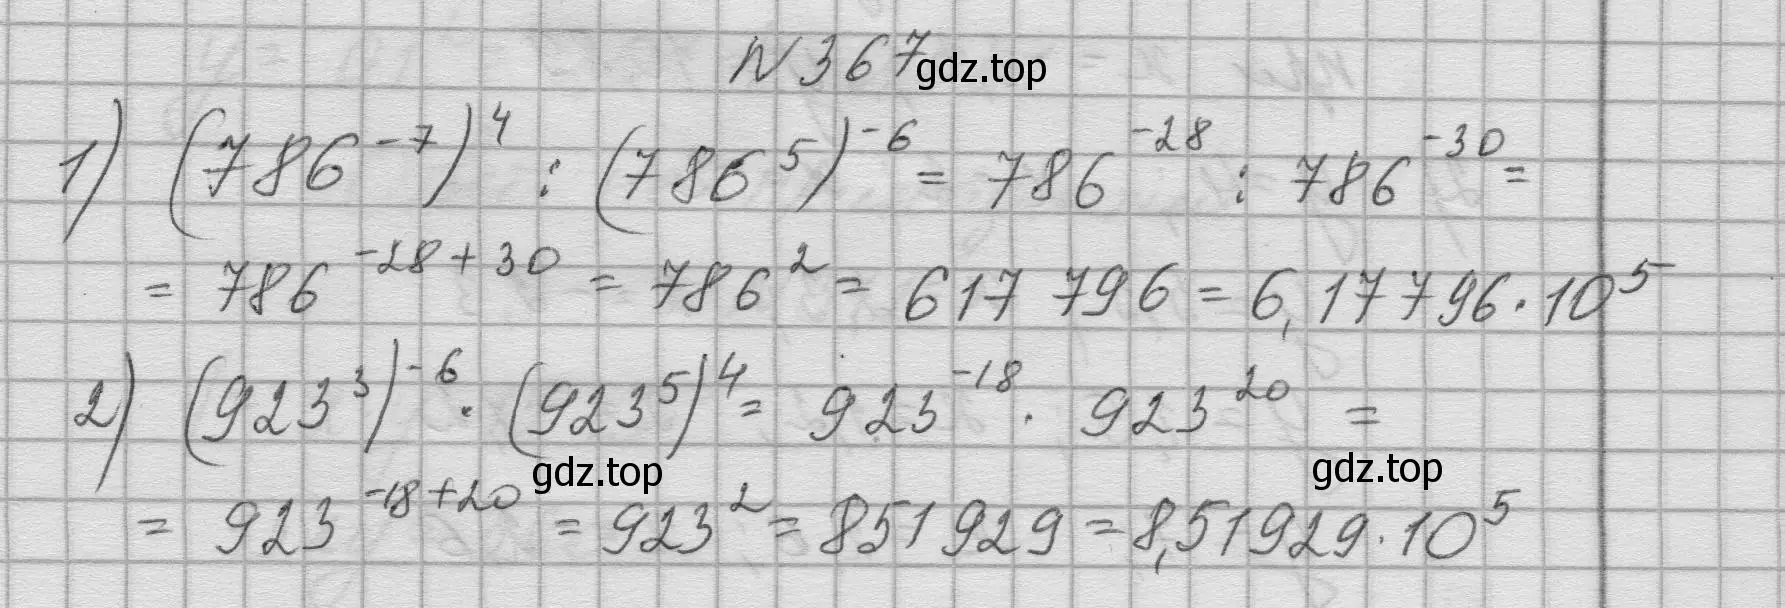 N 367 gdz.top
1) (786⁻⁷)⁴ : (786⁵)⁻⁶ = 786⁻²⁸ : 786⁻³⁰ =
= 786⁻²⁸⁺³⁰ = 786² = 617 796 = 6,17796 · 10⁵
2) (923³)⁻⁶ · (923⁵)⁴ = 923⁻¹⁸ · 923²⁰ =
gdz.top gdz.top
= 923⁻¹⁸⁺²⁰ = 923² = 851 929 = 8,51929 · 10⁵